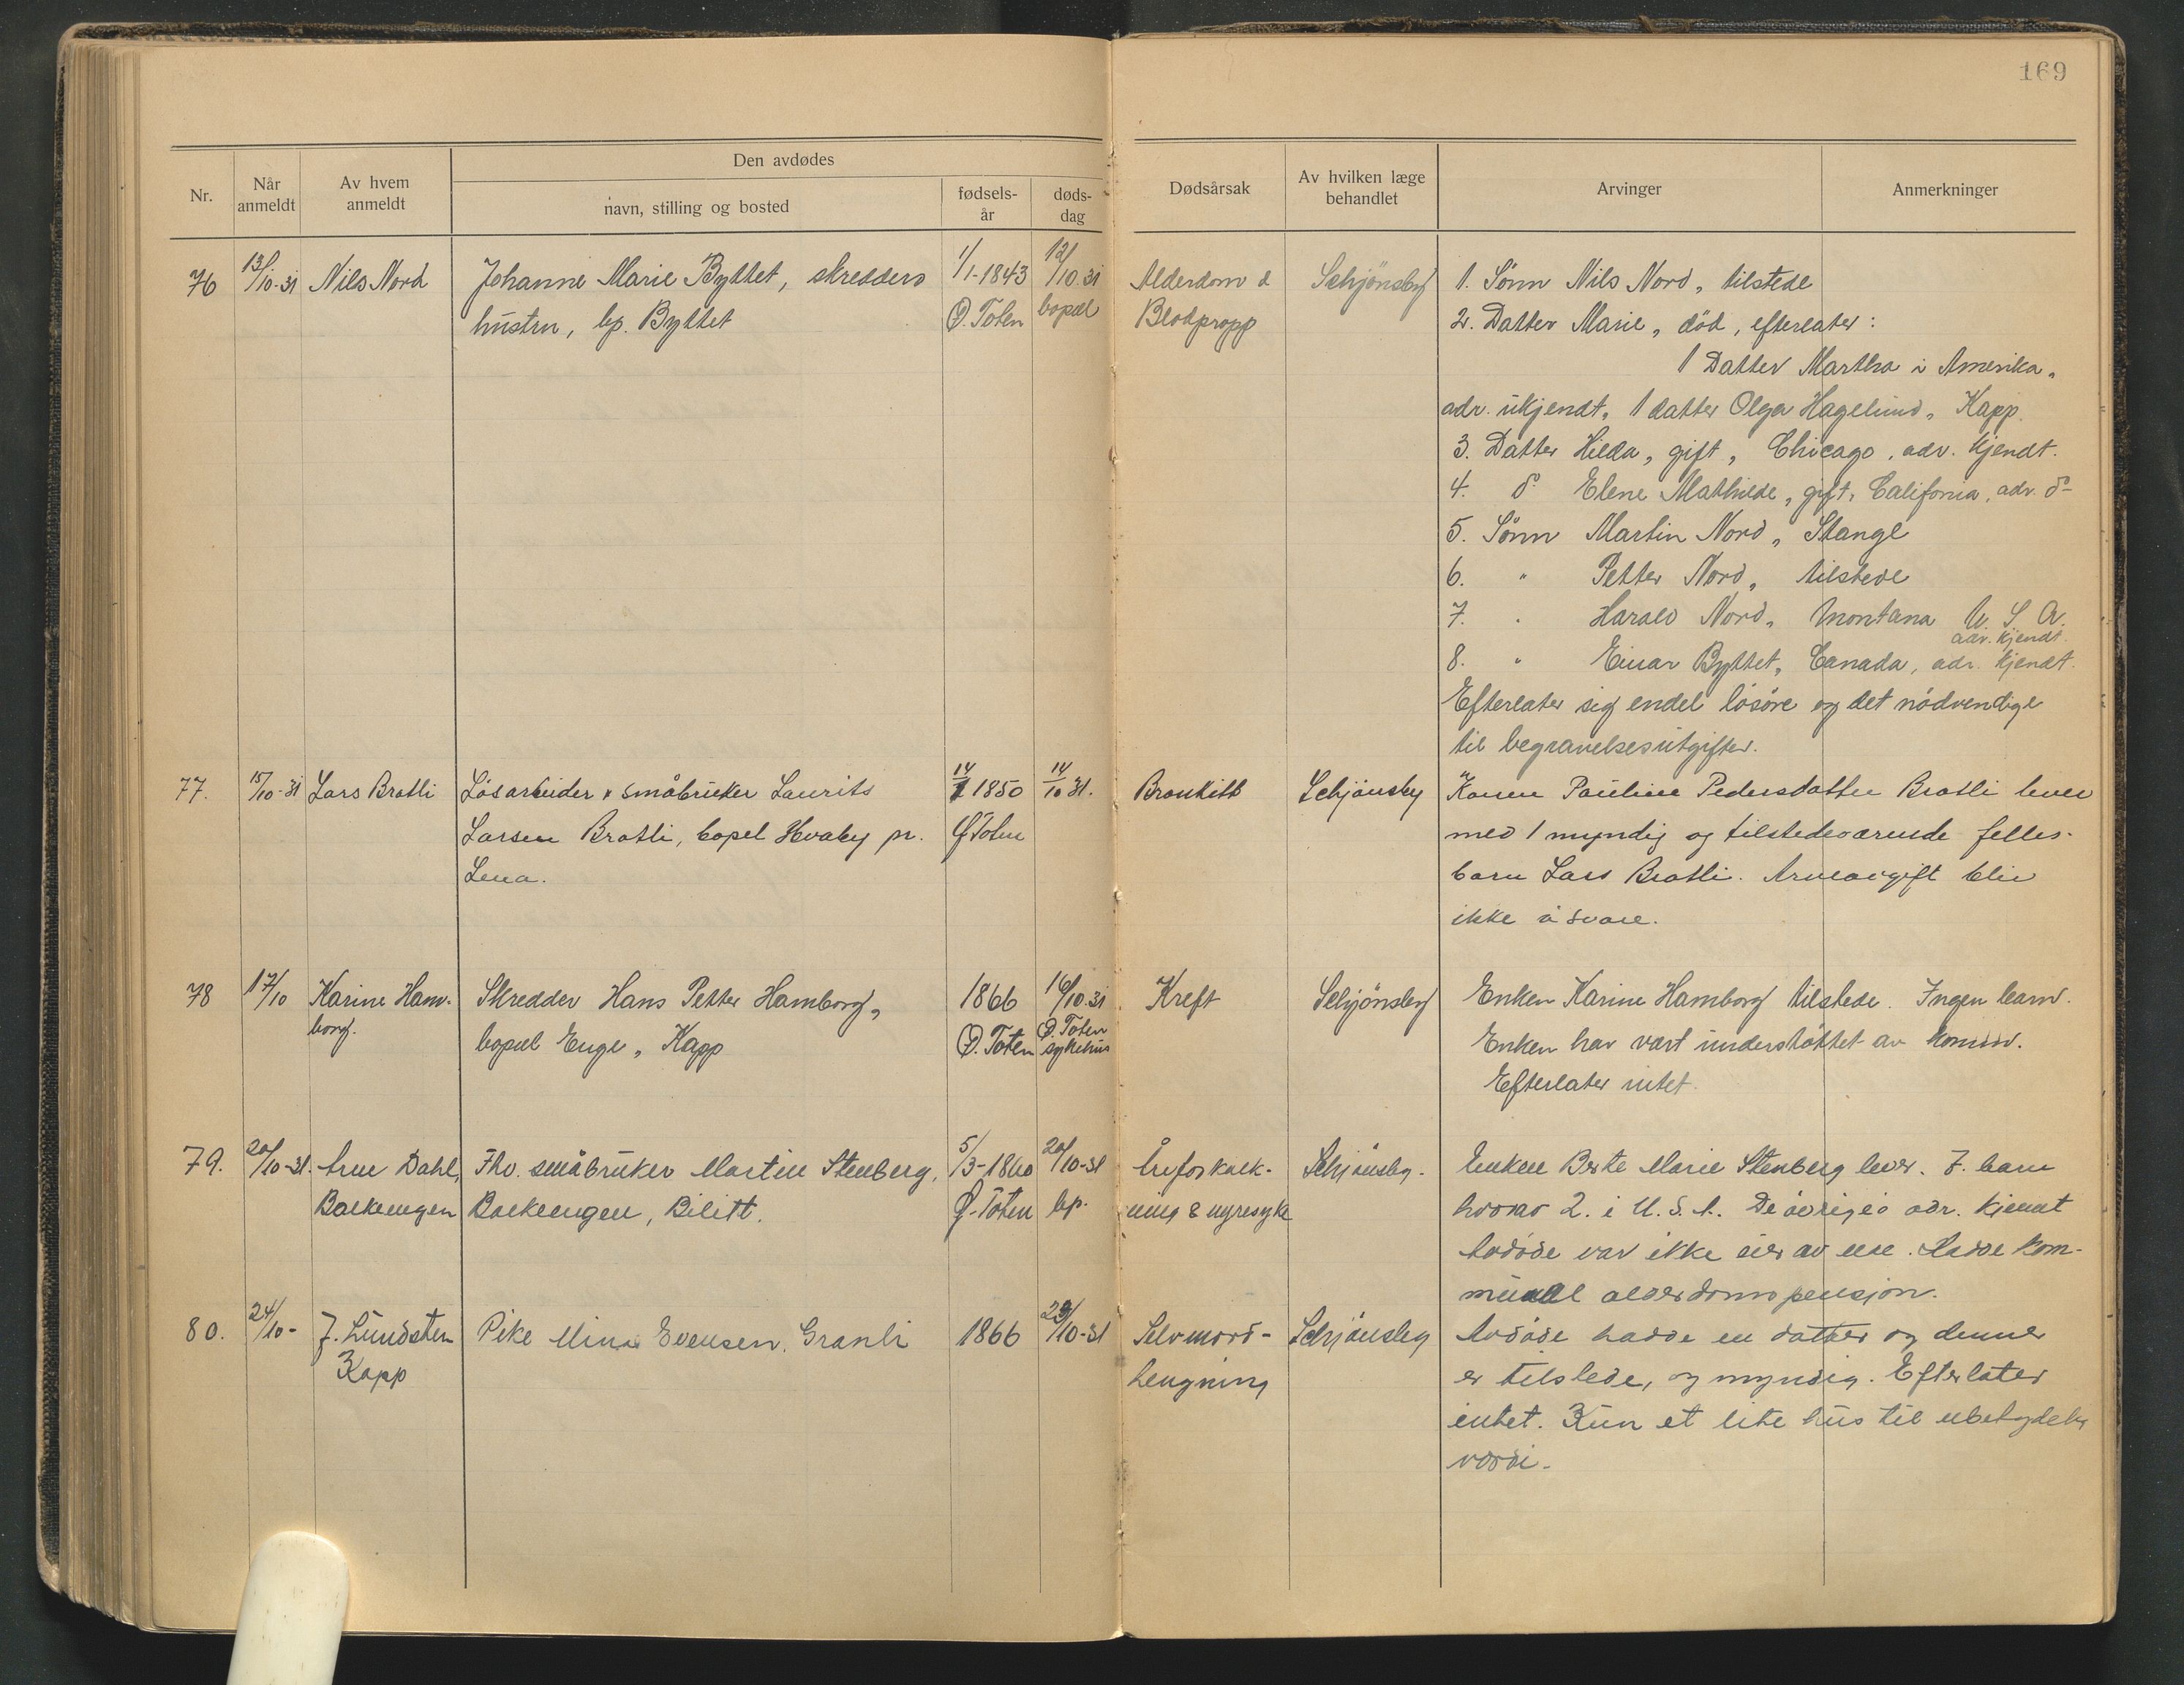 169
Nr.
Når anmeldt
Av hvem anmeldt
Den avdødes
navn, stilling og bosted
fødsels-år
døds-dag
Dødsårsak
Av hvilken læge behandlet
Arvinger
Anmerkninger
76 13/10-31 Nils Nord Johanne Marie Byttet, skredders 1/1-1843 12/10.31 Alderdom & Schjønsby 1. Sønn Nils Nord, tilstede
hustru, bp. Byttet Ø. Toten bopæl Blodpropp 2. Datter Marie, død, efterlater:
1 Datter Martha i Amerika,
adr. ukjendt, 1 datter Olga Hagelund, Kapp.
3. Datter Hilda, gift, Chicago, adr. kjendt.
4. do Elene Mathilde, gift, California, adr. do
5. Sønn Martin Nord, Stange
6. " Petter Nord, tilstede
7. " Harald Nord, Montana U. S. A.
adr. kjendt.
8. " Einar Byttet, Canada, adr. kjendt.
Efterlater sig endel løsøre og det nødvendige
til begravelsesutgifter.
77. 15/10-31 Lars Bratli Løsarbeider & småbruker Laurits 14/1 1850 14/10 31. Bronkitt Schjønsby Konen Pauline Pedersdatter Bratli lever
Larsen Bratli, bopel Hvaby pr. Ø Toten med 1 myndig og tilstedeværende felles-
Lena. barn Lars Bratli. Arveavgift blir
ikke å svare.
78 17/10 Karine Ham- Skredder Hans Petter Hamborg, 1866 16/10.31 Kreft Schjønsby Enken Karine Hamborg tilstede. Ingen barn.
borg. bopæl Enge, Kapp Ø. Toten Ø. Toten sykehus Enken har vært understøttet av komm.
Efterlater intet
79. 20/10-31. Arne Dahl, Fhv. småbruker Martin Stenberg, 5/3-1860 20/10-31 Åreforkalk- Schjønsby. Enken Berte Marie Stenberg lever. 7. barn
Bakkengen Bakkengen, Bilitt. Ø. Toten bp. ning & nyresyke hvorav 2. i U.S.A. De øvriges adr. kjent
Avdøde var ikke eier av noe. Hadde kom-
munal alderdomspensjon.
80. 24/10- J. Lundsten Pike Mina Evensen. Granli 1866 23/10-31 Selvmord- Schjønsby Avdøde hadde en datter og denne
Kapp hengning er tilstede, og myndig. Efterlater
intet. Kun et lite hus til ubetydelig
verdi.